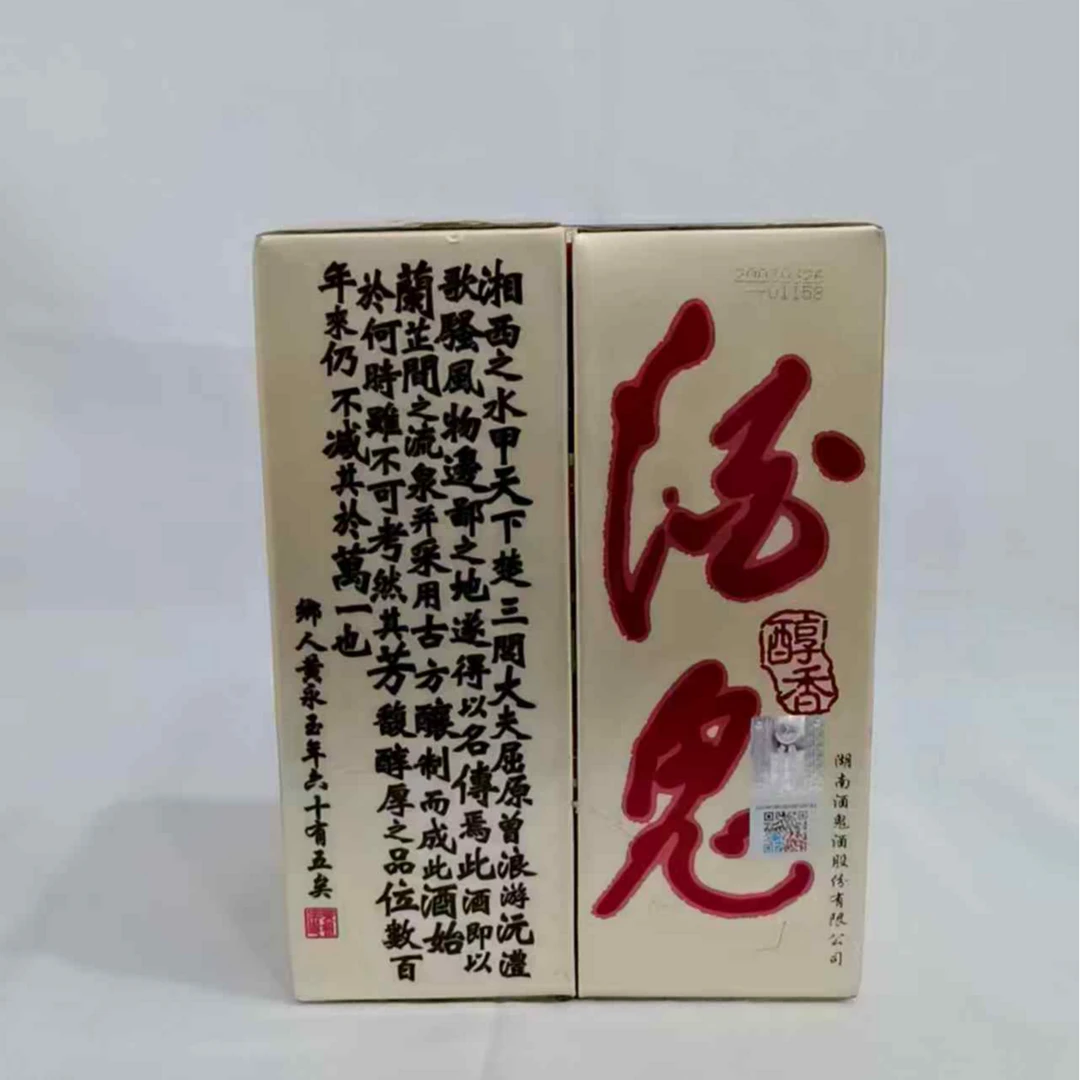 湘西之水甲天下楚三閭大夫屈原曾浪游沅澧
歌騷風物邊鄙之地遂得以名傳焉此酒即以
蘭芷間之流泉并采用古方釀制而成此酒始
於何時雖不可考然其芳馥醇厚之品位數百
年來仍不减其於萬一也
鄉人黄永玉年六十有五矣
01158
酒鬼
醇香
湖南酒鬼酒股份有限公司